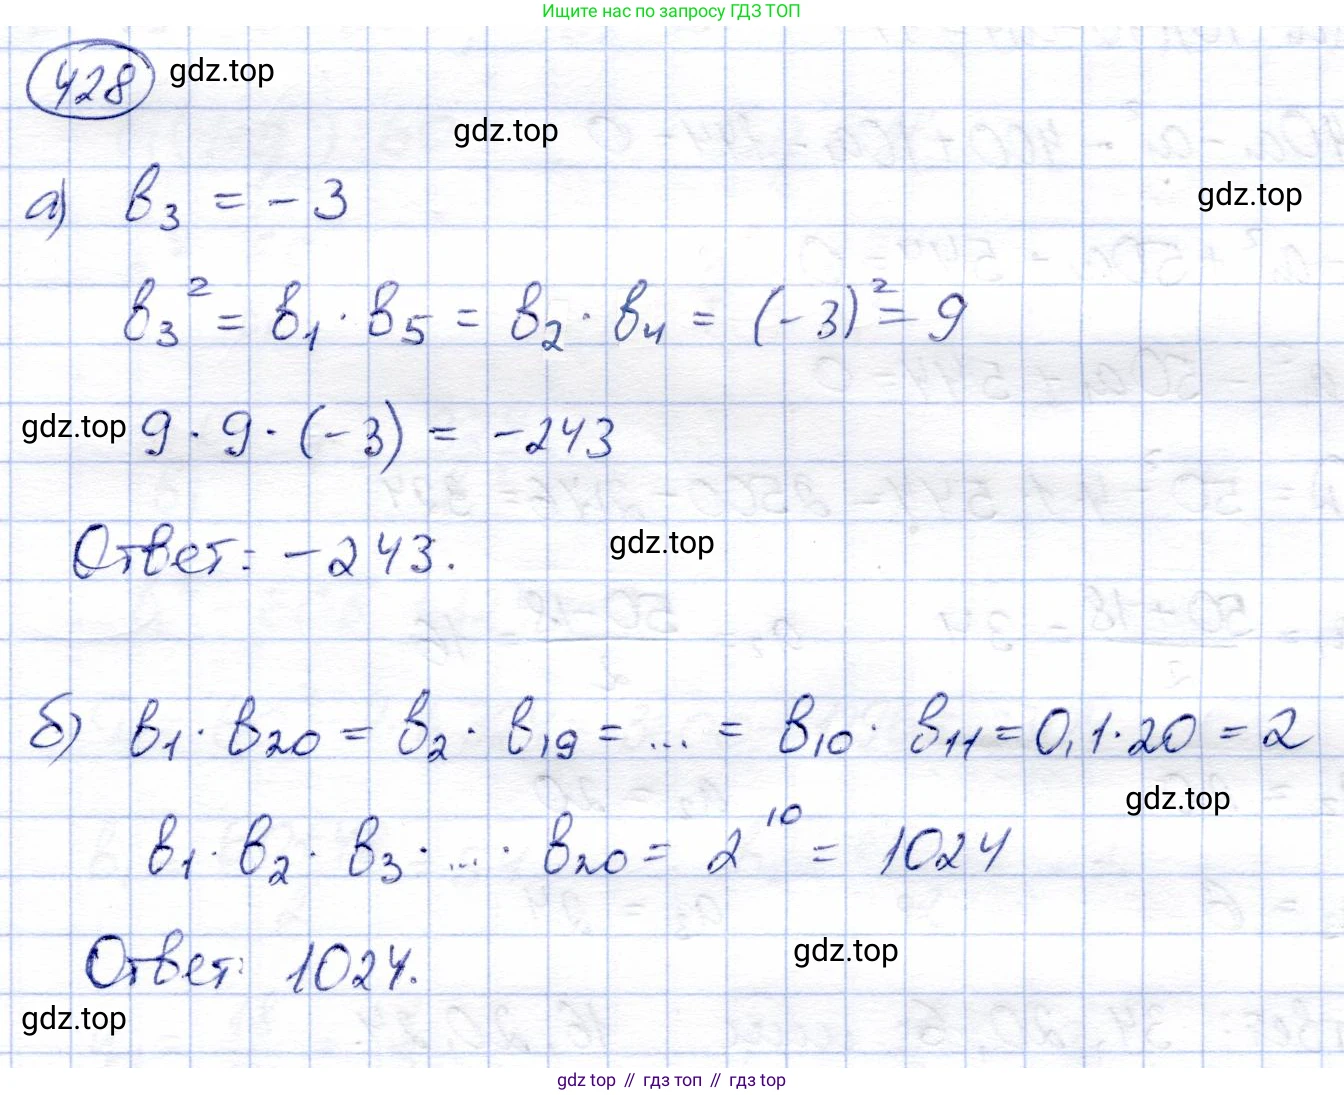 Ищите нас по запросу ГДЗ ТОП
428 gdz.top
gdz.top
а) b₃ = -3
gdz.top
b₃² = b₁ · b₅ = b₂ · b₄ = (-3)² = 9
gdz.top 9 · 9 · (-3) = -243
Ответ: -243.
gdz.top
б) b₁ · b₂₀ = b₂ · b₁₉ = ... = b₁₀ · b₁₁ = 0,1 · 20 = 2
gdz.top
b₁ · b₂ · b₃ · ... · b₂₀ = 2¹⁰ = 1024
Ответ: 1024.
gdz.top
gdz.top
gdz top // гдз топ // гдз top